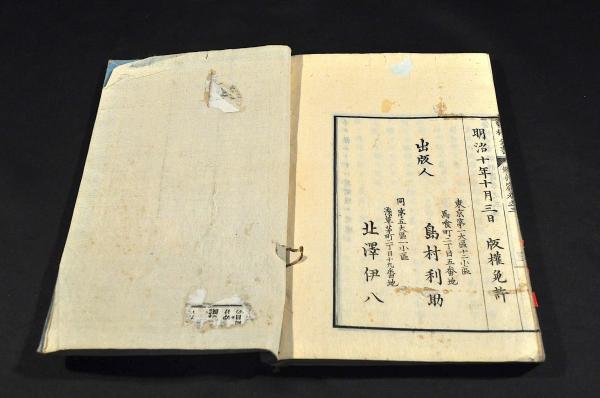 明治十年十月三日 版權免許
出版人
東京第一大區十二小區
馬喰町二丁目五番地
島村利助
同第五大區一小區
淺草茅町二丁目十九番地
北澤伊八